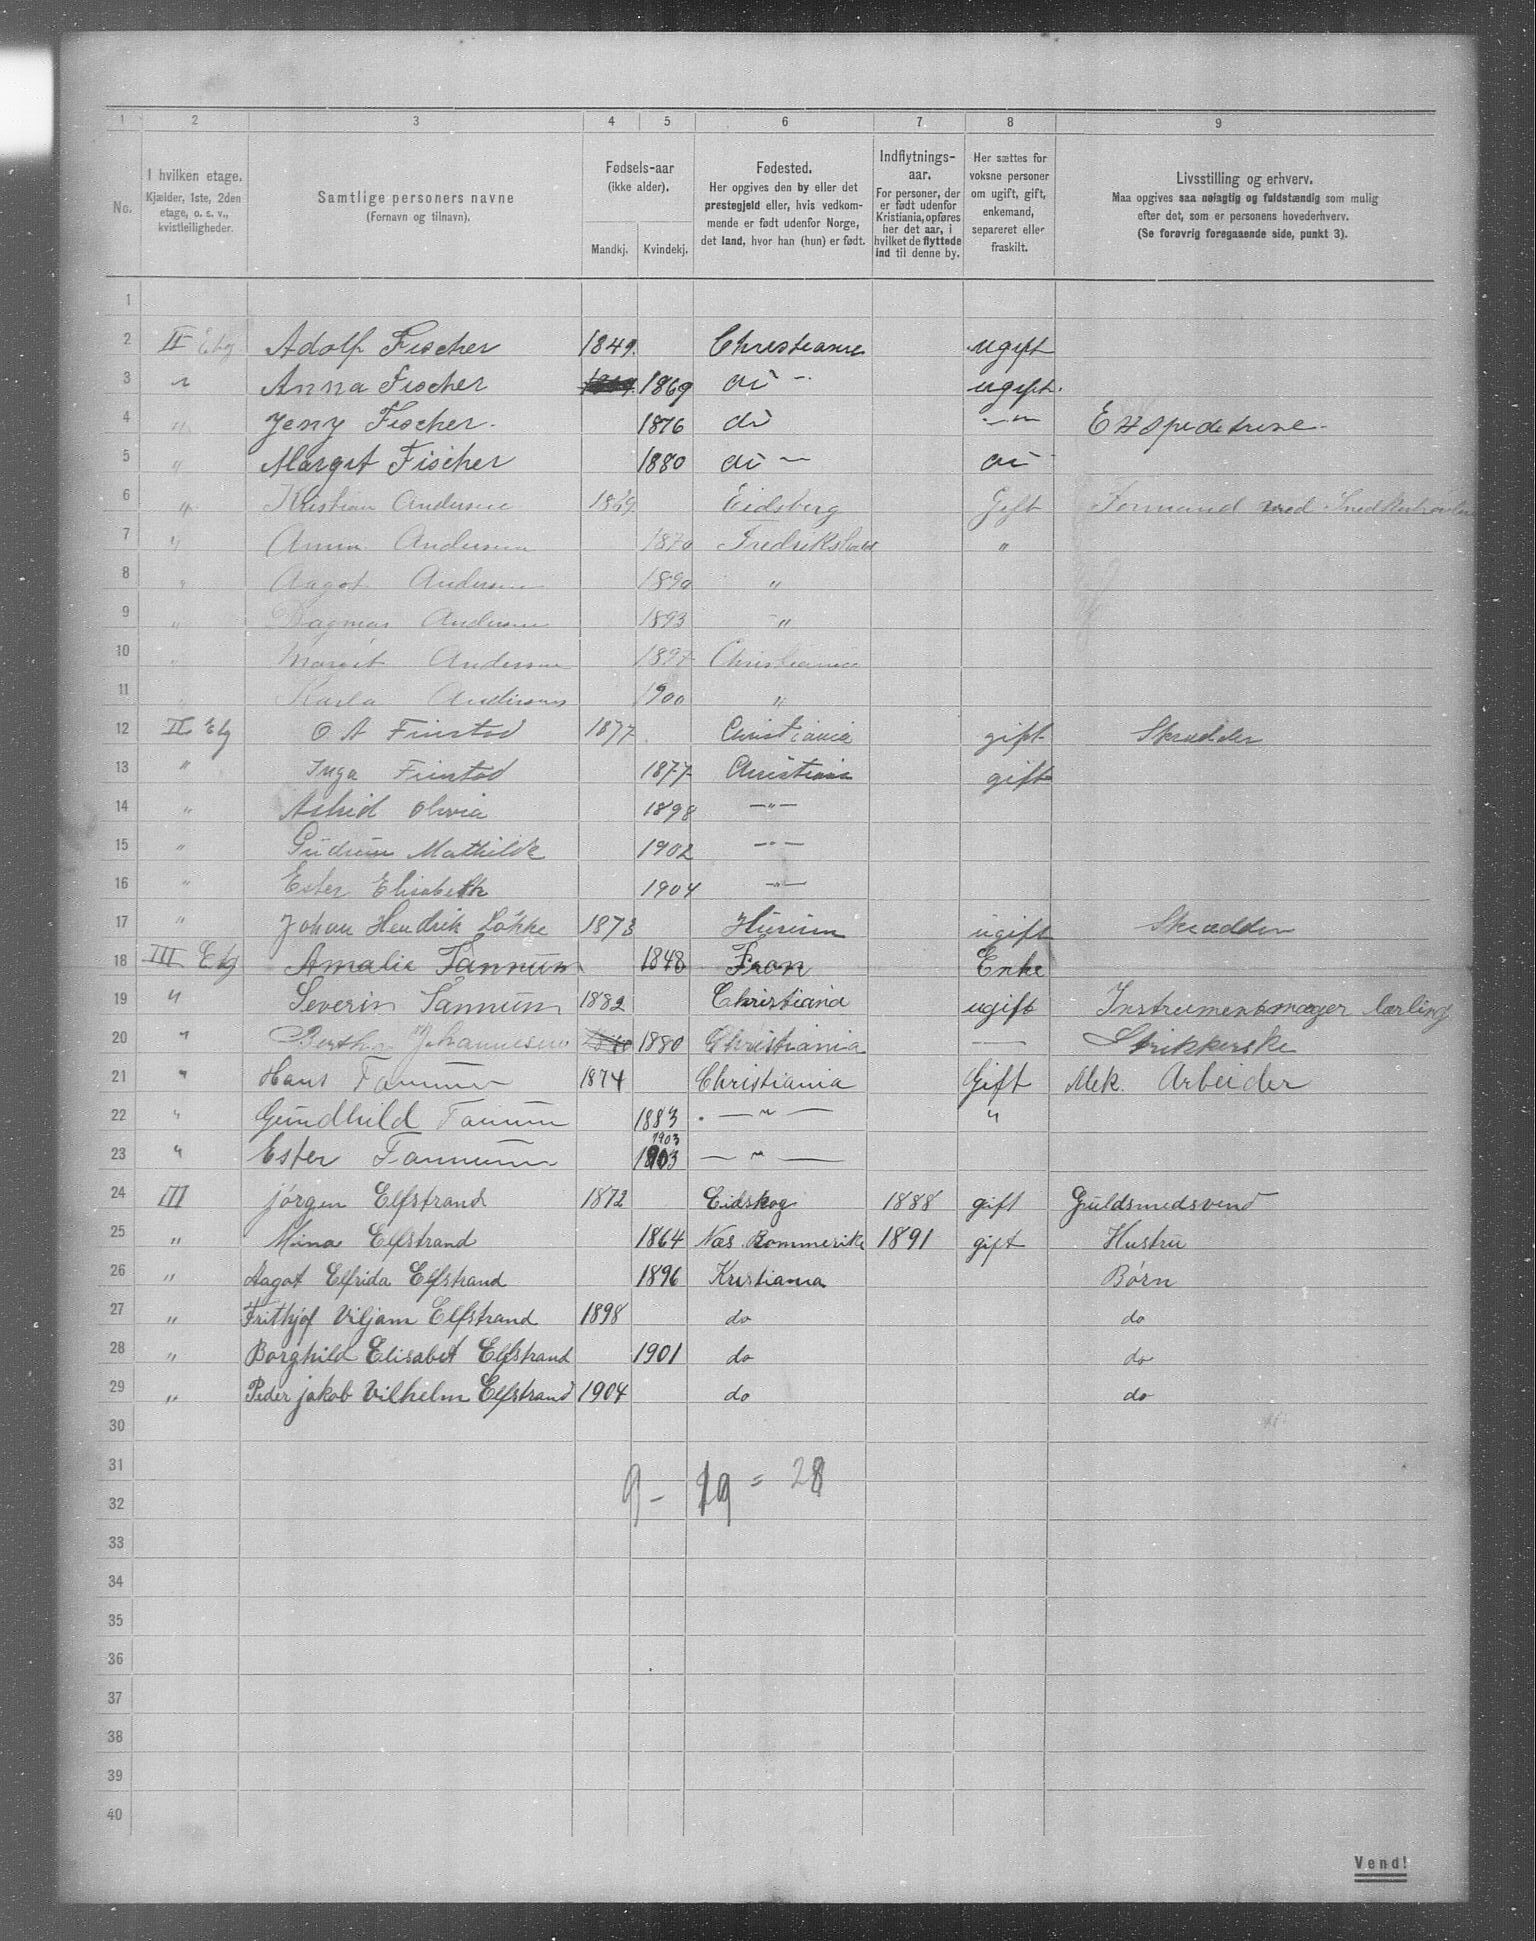 1 2 3 4 5 6 7 8 9
No.
I hvilken etage.
Kjælder, 1ste, 2den
etage, o. s. v.,
kvistleiligheder.
Samtlige personers navne
(Fornavn og tilnavn).
Fødsels-aar
(ikke alder).
Mandkj. Kvindekj.
Fødested.
Her opgives den by eller det
prestegjeld eller, hvis vedkom-
mende er født udenfor Norge,
det land, hvor han (hun) er født.
Indflytnings-
aar.
For personer, der
er født udenfor
Kristiania, opføres
her det aar, i
hvilket de flyttede
ind til denne by.
Her sættes for
voksne personer
om ugift, gift,
enkemand,
separeret eller
fraskilt.
Livsstilling og erhverv.
Maa opgives saa nøiagtig og fuldstændig som mulig
efter det, som er personens hovederhverv.
(Se forøvrig foregaaende side, punkt 3).
1
2 II Etg Adolf Fischer 1849. Christiania ugift
3 " Anna Fischer 1869 do — ugift.
4 " Jeny Fischer. 1876 do —"— Exspeditrise.
5 " Margit Fischer 1880 do — do
6 " Kristian Andersen 1869 Eidsberg Gift Formand ved
7 " Anna Andersen 1870 Fredrikshald "
8 " Aagot Andersen 1890 "
9 " Dagmar Andersen 1893 "
10 " Margit Andersen 1897 Christiania
11 " Karla Andersen 1900 "
12 II Etg O A Finstad 1877 Christiania gift Skrædder
13 " Inga Finstad 1877 Christiania gift
14 " Astrid Olivia 1898 —"—
15 " Gudrun Mathilde 1902 —"—
16 " Ester Elisabeth 1904 —"—
17 " Johan Hendrik Løkke 1873 Hurum ugift Skrædder
18 III Etg Amalie Tannum 1848 Fron Enke
19 " Severin Tannum 1882 Christiania ugift Instrumentmager lærling
20 " Bertha Johannesen 1880 Christiania — Strikkerske
21 " Hans Tannum 1874 Christiania Gift Mek. Arbeider
22 " Gundhild Tannum 1883 —"— "
23 " Ester Tannum 1903 1903 —"—
24 III Jørgen Elfstrand 1872 Eidskog 1888 gift Guldsmedsvend
25 " Mina Elfstrand 1864 Næs Rommerike 1891 gift Hustru
26 " Aagot Elfrida Elfstrand 1896 Kristiania Børn
27 " Frithjof Viljam Elfstrand 1898 do do
28 " Borghild Elisabet Elfstrand 1901 do do
29 " Peder jakob Vilhelm Elfstrand 1904 do do
30
31
9 - 19 = 28
32
33
34
35
36
37
38
39
40
Vend!